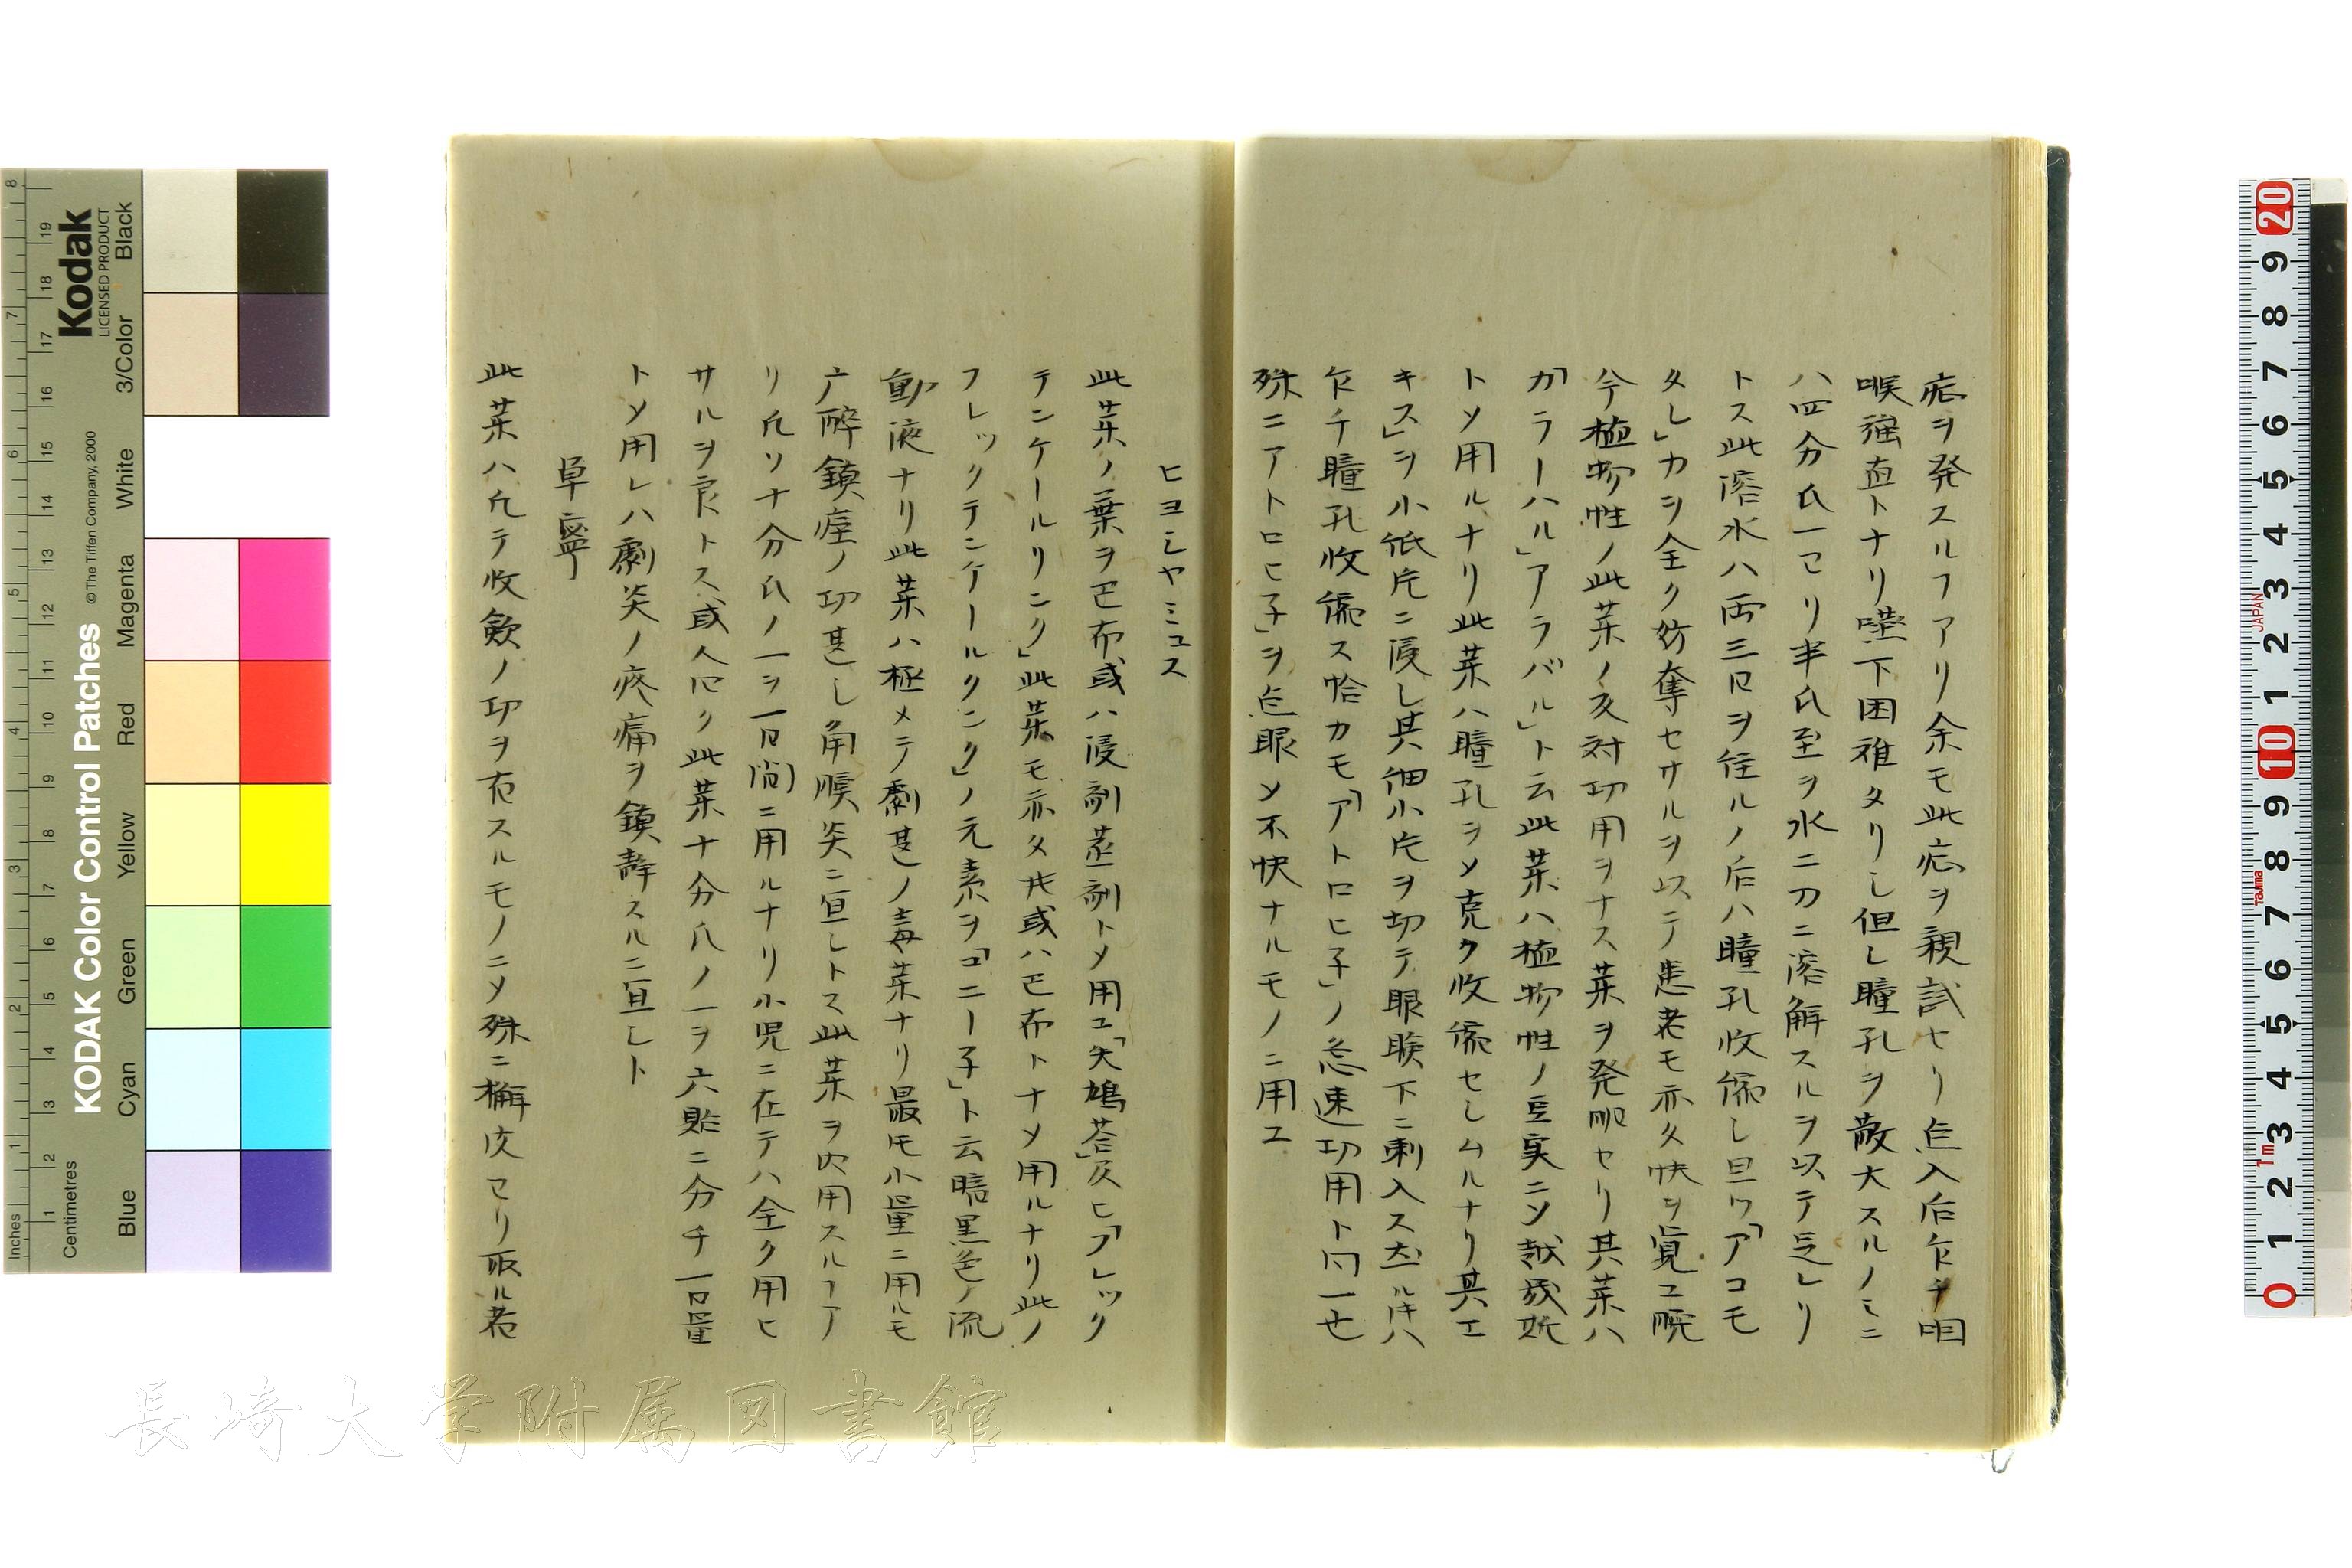 症ヲ発スルヿアリ余モ此症ヲ親試セリ点入后乍チ咽
喉強直トナリ嚥下困难タリし但し瞳孔ヲ散大スルノミニ
ハ四分氏一ヨリ半氏至ヲ水二刃ニ溶解スルヲ以テ足レリ
トス此溶水ハ両三日ヲ住ルノ后ハ瞳孔收縮し且ツ「アコモ
タレ」カヲ全ク妨奪セサルヲ以テ患者モ亦タ快ヲ覚ユ晩
今植物性ノ此薬ノ反対功用ヲナス薬ヲ発明セリ其薬ハ
「カラーハル」アラバル」ト云此薬ハ植物性ノ豆実ニソ越幾斯
トメ用ルナリ此薬ハ瞳孔ヲメ克ク收縮セしムルナリ其エ
キス」ヲ小紙片ニ浸し其細小片ヲ切テ眼瞼下ニ刺入ス
乍チ瞳孔收縮ス恰カモ「アトロヒ子」ノ急速功用ト同一也
殊ニアトロヒ子」ヲ点眼メ不快ナルモノニ用ユ
ヒヨシヤミュス
此薬ノ葉ヲ巴布或ハ浸剤蒸剤トメ用ユ「失鳩荅」及ヒ「フレック
テンケールリンク」此薬モ亦タ 或ハ巴布トナメ用ルナリ此ノ
フレックテンケールリンク」ノ元素ヲ「コニー子」ト云暗黒色ノ流
動液ナリ此薬ハ極メテ劇甚ノ毒薬ナリ最モ小量ニ用ルモ
广酔鎮痙ノ功甚し角膜炎ニ宜しトス此薬ヲ内用スルヿア
リ凡ソ十分氏ノ一ヲ一日間ニ用ルナリ小児ニ在テハ全ク用ヒ
サルヲ良トス或人曰ク此薬十分氏ノ一ヲ六貼ニ分チ一日量
トメ用レハ劇炎ノ疼痛ヲ鎮静スルニ宜しト
単寧
此薬ハ凡テ收歛ノ功ヲ有スルモノニメ殊ニ檞皮ヨリ取ル者
KODAK Color Control Patches
© The Tiffen Company, 2000
Kodak
LICENSED PRODUCT
Inches
Centimetres
Blue
Cyan
Green
Yellow
Red
Magenta
White
3/Color
Black
長崎大学附属図書館
JAPAN
Tajima
1m